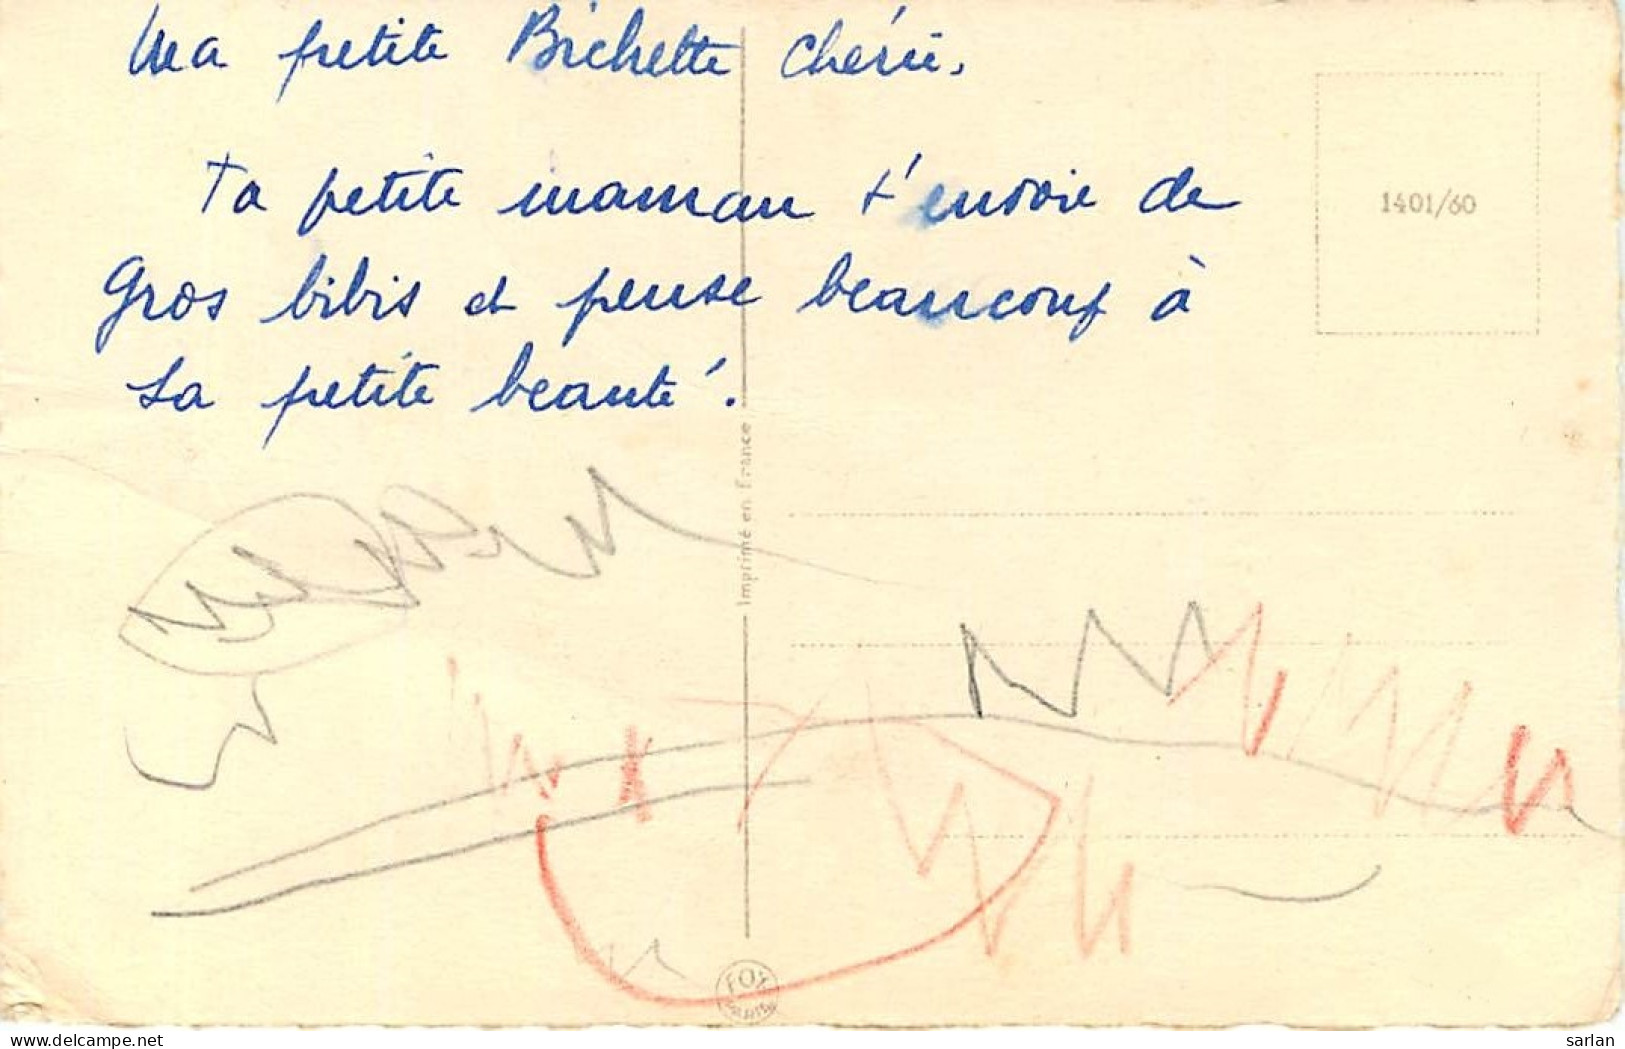 Ma petite Bichette Chérie.
Ta petite maman t'envoie de
Gros bibis et pense beaucoup à
sa petite beauté.
1401/60
Imprimé en France
FOX
PARIS
delcampe.net
sarlan